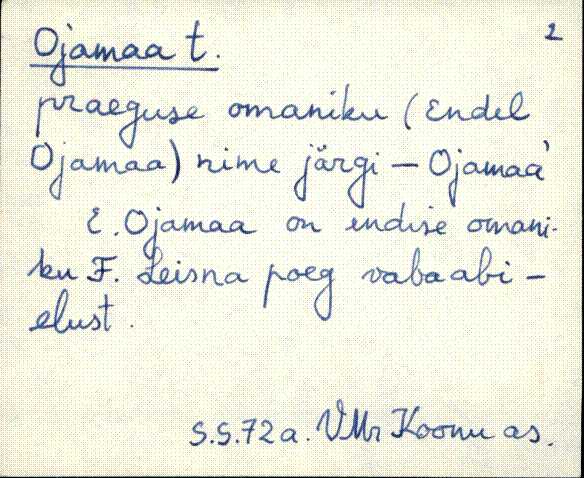 2
Ojamaa t.
praeguse omaniku (Endel
Ojamaa) nime järgi – Ojamaa
E. Ojamaa on endise omani-
ku F. Leisna poeg vabaabi-
elust.
S.S.72a. VMr Koonu as.